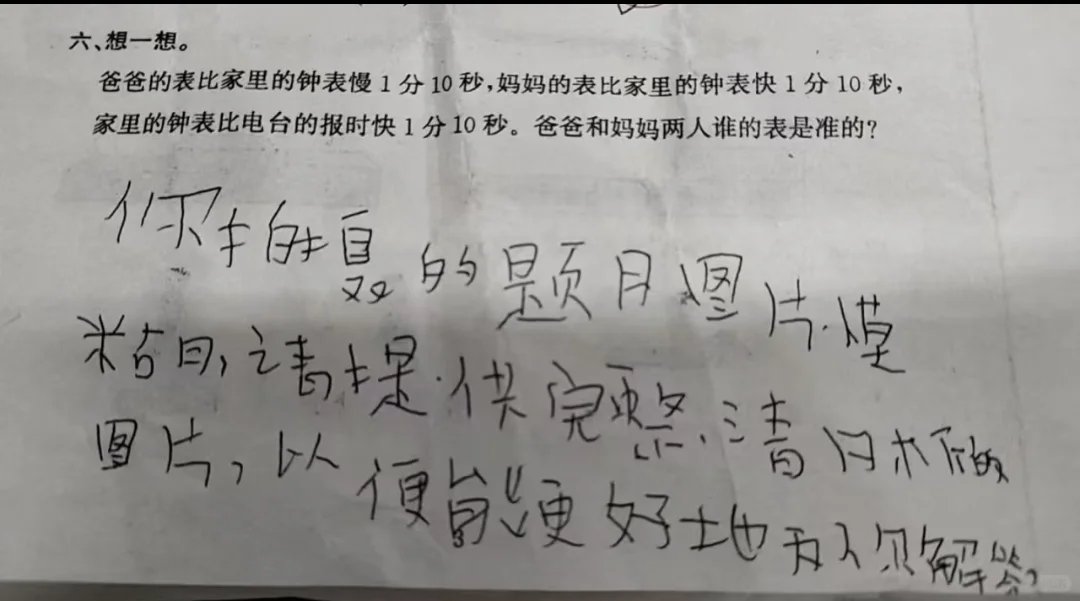 六、想一想。
爸爸的表比家里的钟表慢1分10秒,妈妈的表比家里的钟表快1分10秒,
家里的钟表比电台的报时快1分10秒。爸爸和妈妈两人谁的表是准的?
你拍的题目图片模
粘,请提供完整、清
图片,以便能更好地为你解答。